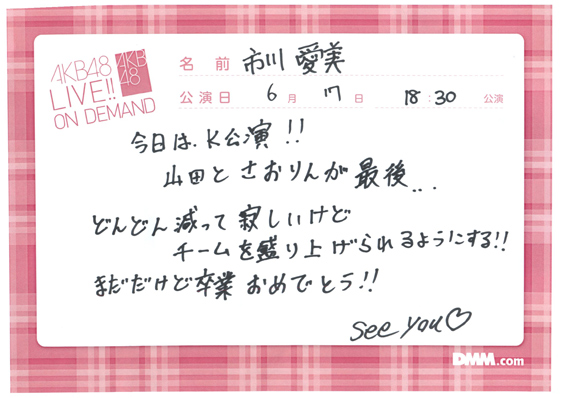 AKB48
LIVE!!
ON DEMAND
AKB
48
名前 市川 愛美
公演日 6月 17日 18:30 公演
今日は、K公演!!
山田とさおりんが最後...
どんどん減って寂しいけど
チームを盛り上げられるようにする!!
まだだけど卒業おめでとう!!
see you♡
DMM.com